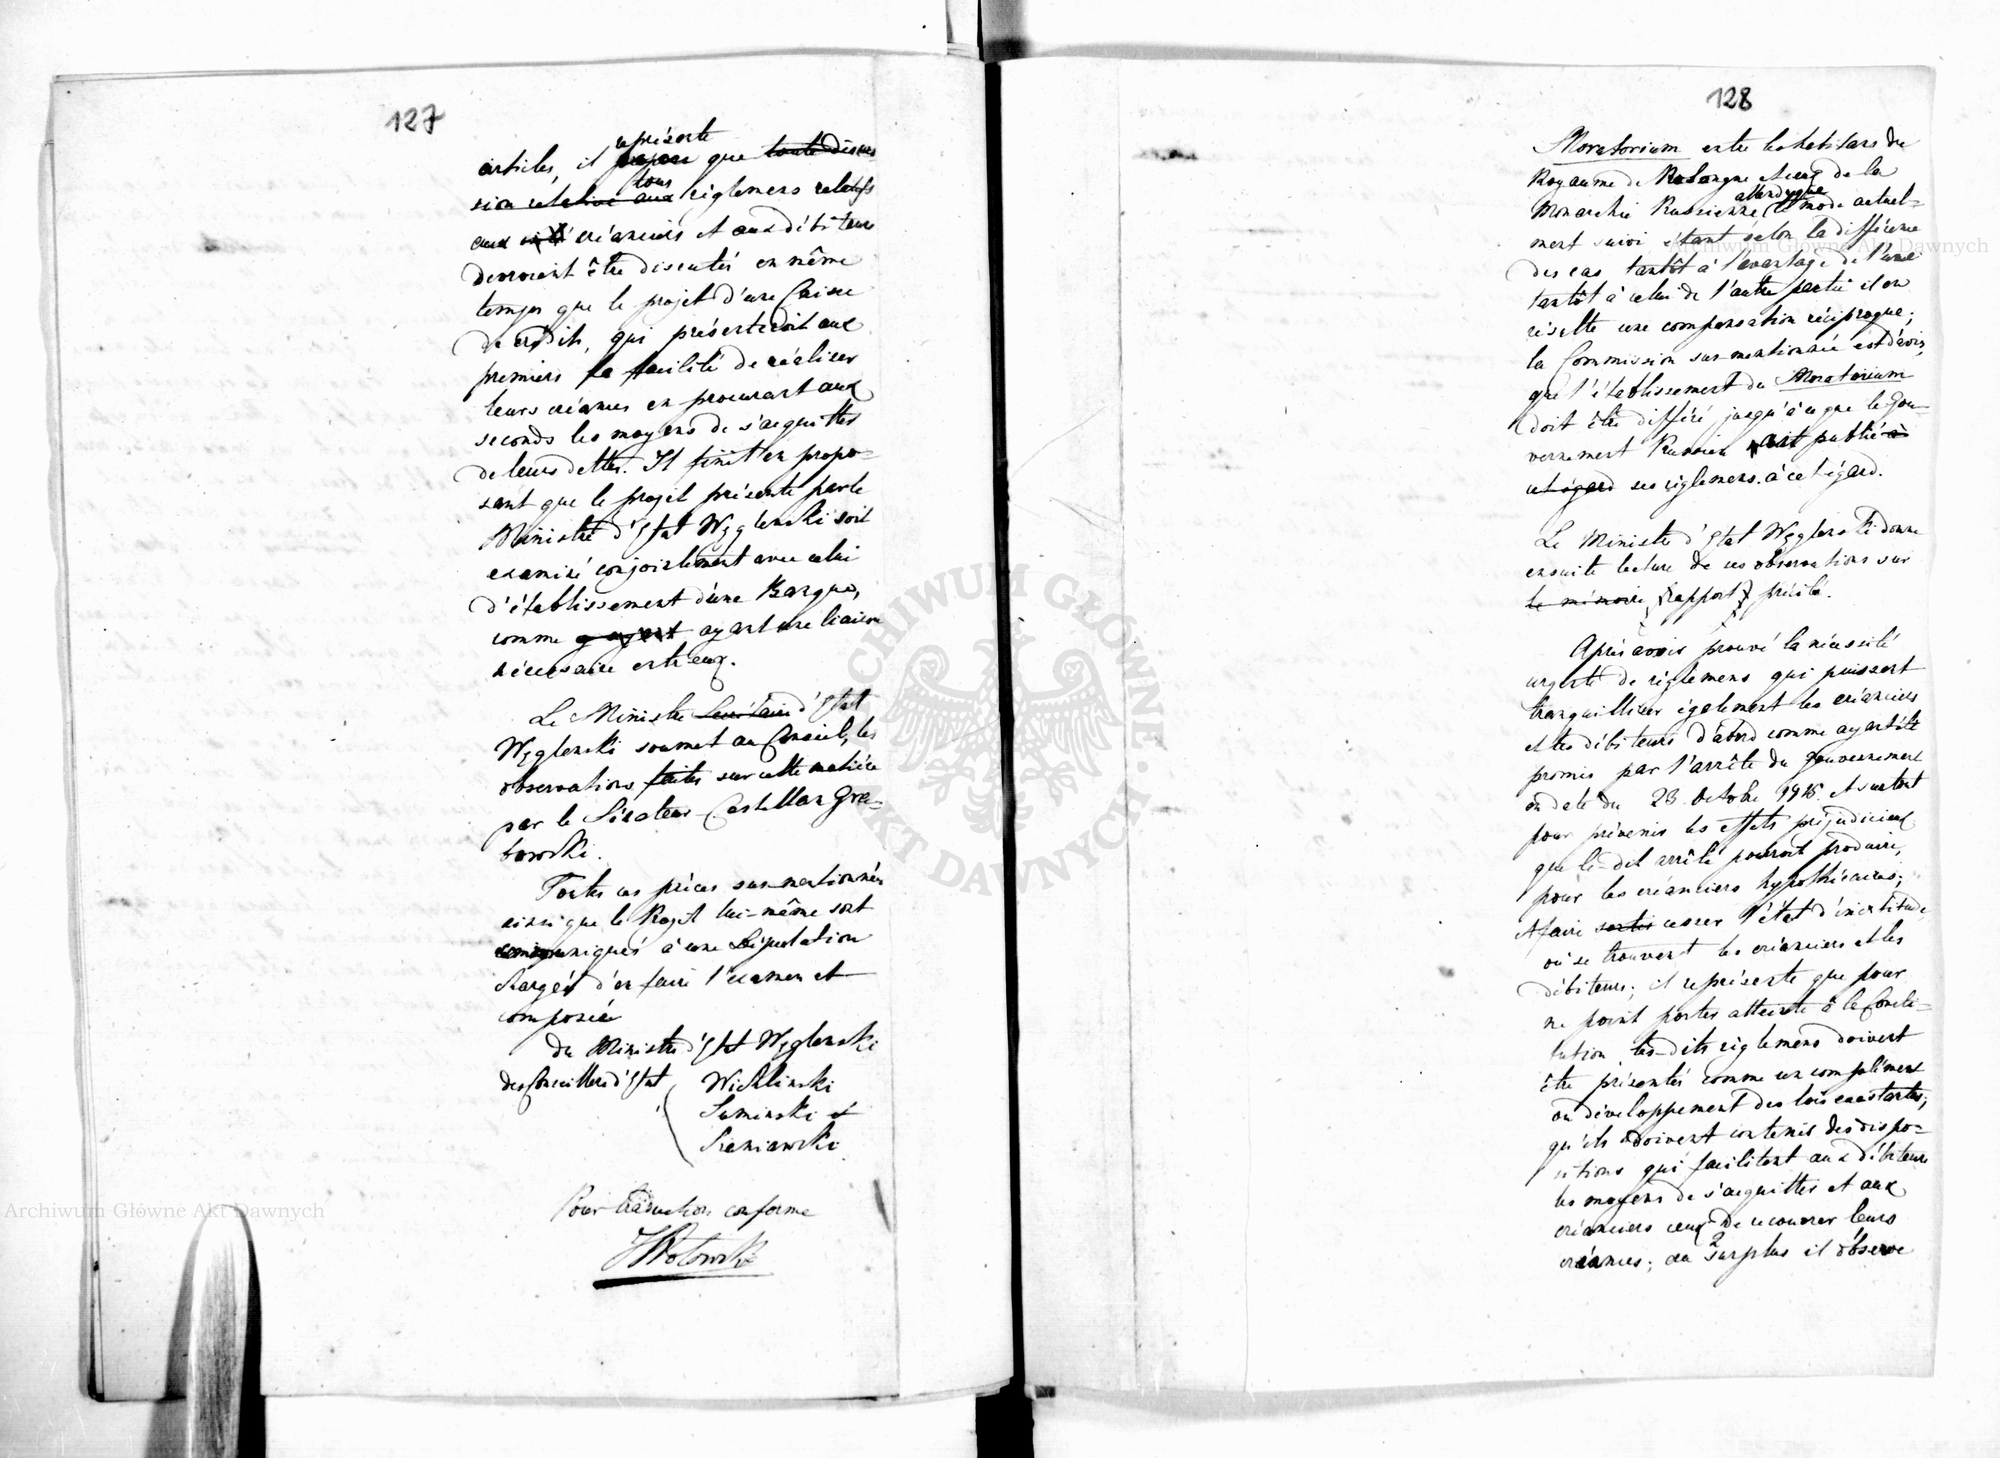 127
représente
articles, il propose que toute discus
tous
sion relative aux règlemens relatifs
aux créanciers et aux débiteurs
devroient être discutés en même
temps que le projet d'une Caisse
de crédit, qui présenteroit aux
premiers la facilité de réaliser
leurs créances en procurant aux
seconds les moyens de s'acquitter
de leurs dettes. Il finit en propo-
sant que le projet présenté par le
Ministre d'Etat Węglenski soit
examiné conjointement avec celui
d'établissement d'une Banque,
comme ayant une liaison
nécessaire entr'eux.
Le Ministre Secrétaire d'Etat
Węglenski soumet au Conseil, les
observations faites sur cette matière
par le Sénateur Castellan Gra-
bowski.
Toutes ces pièces sus-mentionnées
ainsi que le Projet lui-même sont
communiqués à une Députation
chargée d'en faire l'examen et
composée
du Ministre d'Etat Węglenski
des Conseillers d'Etat Wichlinski
Suminski et
Staniawski
Pour traduction conforme
128
Moratorium entre les habitans du
Royaume de Pologne et ceux de la
attendu que
Monarchie Russienne le mode actuel-
ment suivi étant selon la différence
des cas tantôt à l'avantage de l'une
tantôt à celui de l'autre partie il en
résulte une compensation réciproque;
la Commission sus-mentionnée est d'avis,
que l'établissement du Moratorium
doit être différé jusqu'à ce que le Gou-
vernement Russien ait publié à
cet égard ses règlemens à cet égard.
Le Ministre d'Etat Węglenski donne
ensuite lecture de ses observations sur
le mémoire rapport précité.
Après avoir prouvé la nécessité
urgente de règlemens qui puissent
tranquilliser également les créanciers
et les débiteurs d'abord comme ayant été
promis par l'arrêté du Gouvernement
en date du 23 Octobre 1815. et surtout
pour prévenir les effets préjudiciaux
que le-dit arrêté pourroit produire,
pour les créanciers hypothécaires;
et faire sortir cesser l'état d'incertitude
où se trouvent les créanciers et les
débiteurs; il représente que pour
ne point porter atteinte à la Consti-
tution les-dits règlemens doivent
être présentés comme un complément
ou développement des lois existantes;
qu'ils doivent contenir des dispo-
sitions qui facilitent aux débiteurs
les moyens de s'acquitter et aux
créanciers ceux de recouvrer leurs
créances; au surplus il observe
2
Archiwum Główne Akt Dawnych
Archiwum Główne Akt Dawnych
ARCHIWUM GŁÓWNE AKT DAWNYCH